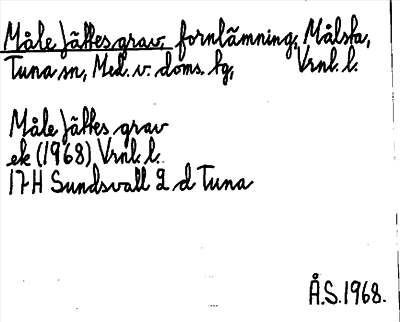 Måle Jättes grav, fornlämning, Målsta,
Tuna sn, Med. v. doms. hg, Vrnl. l.
Måle Jättes grav
ek (1968) Vrnl. l.
17H Sundsvall 2 d Tuna
Å.S. 1968.